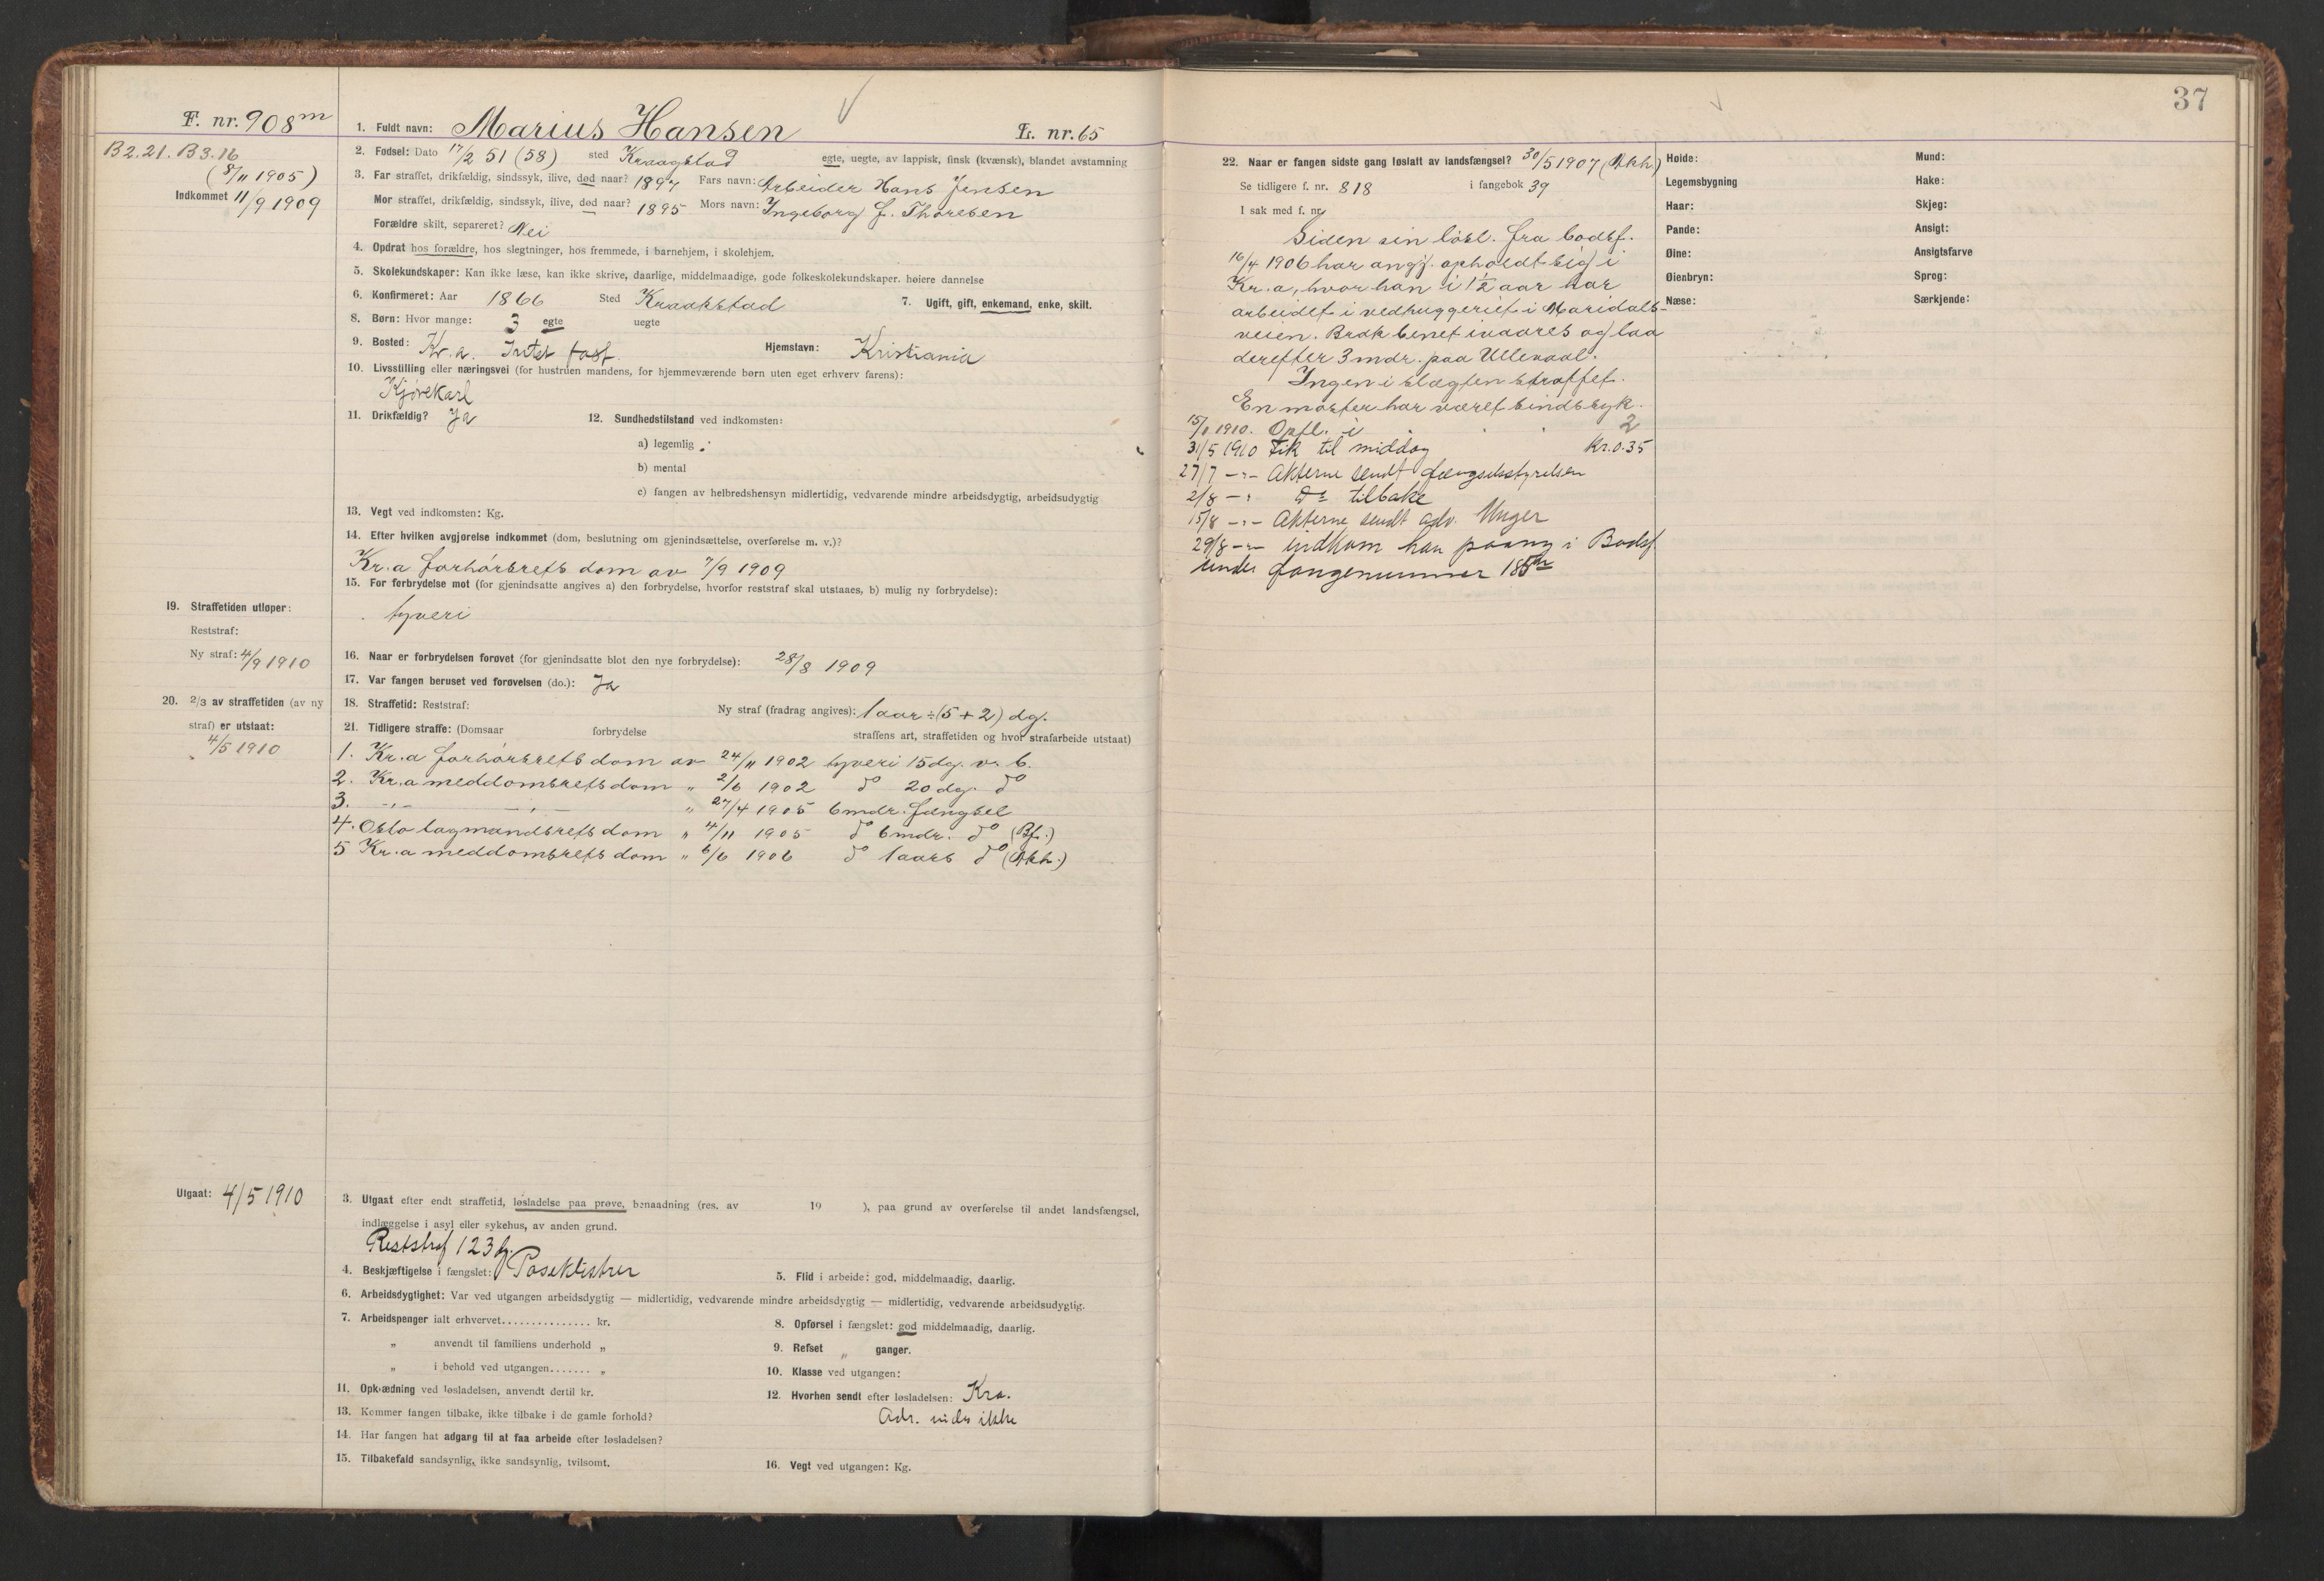 F. nr. 908 m
B2.21. B3.16
(8/11 1905)
Indkommet 11/9 1909
1. Fuldt navn: Marius Hansen L. nr. 65
2. Fødsel: Dato 17/2 51 (58) sted Kraagstad egte, uegte, av lappisk, finsk (kvænsk), blandet avstamning
3. Far straffet, drikfældig, sindssyk, ilive, død naar? 1897 Fars navn: Arbeider Hans Jensen
Mor straffet, drikfældig, sindssyk, ilive, død naar? 1895 Mors navn: Ingeborg f. Thoresen
Forældre skilt, separeret? Nei
4. Opdrat hos forældre, hos slegtninger, hos fremmede, i barnehjem, i skolehjem.
5. Skolekundskaper: Kan ikke læse, kan ikke skrive, daarlige, middelmaadige, gode folkeskolekundskaper. høiere dannelse
6. Konfirmeret: Aar 1866 Sted Kraakstad 7. Ugift, gift, enkemand, enke, skilt.
8. Børn: Hvor mange: 3 egte uegte
9. Bosted: Kr.a. Intet fast. Hjemstavn: Kristiania
10. Livsstilling eller næringsvei (for hustruen mandens, for hjemmeværende børn uten eget erhverv farens):
Kjørekarl
11. Drikfældig? Ja 12. Sundhedstilstand ved indkomsten:
a) legemlig :
b) mental
c) fangen av helbredshensyn midlertidig, vedvarende mindre arbeidsdygtig, arbeidsudygtig
13. Vegt ved indkomsten: Kg.
14. Efter hvilken avgjørelse indkommet (dom, beslutning om gjenindsættelse, overførelse m. v.)?
Kr.a forhørsrets dom av 7/9 1909
15. For forbrydelse mot (for gjenindsatte angives a) den forbrydelse, hvorfor reststraf skal utstaaes, b) mulig ny forbrydelse):
tyveri
19. Straffetiden utløper:
Reststraf:
Ny straf: 4/9 1910
16. Naar er forbrydelsen forøvet (for gjenindsatte blot den nye forbrydelse): 28/8 1909
17. Var fangen beruset ved forøvelsen (do.): Ja
20. 2/3 av straffetiden (av ny
straf) er utstaat:
4/5 1910
18. Straffetid: Reststraf: Ny straf (fradrag angives): 1 aar ÷ (5 + 2) dg.
21. Tidligere straffe: (Domsaar forbrydelse straffens art, straffetiden og hvor strafarbeide utstaat)
1. Kr.a forhørsrets dom av 24/11 1902 tyveri 15 dg. v. b.
2. Kr.a meddomsrets dom " 2/6 1902 do 20 dg. do
3. -"- -"- " 27/4 1905 6 mdr. fængsel
4. Oslo lagmandsrets dom " 4/11 1905 do 6 mdr. do (Bf.)
5 Kr.a meddomsrets dom " 6/6 1906 do 1 aars do (Akh.)
Utgaat: 4/5 1910
3. Utgaat efter endt straffetid, løsladelse paa prøve, benaadning (res. av 19 ), paa grund av overførelse til andet landsfængsel,
indlæggelse i asyl eller sykehus, av anden grund.
Reststraf 123 dg.
4. Beskjæftigelse i fængslet: Poseklistrer 5. Flid i arbeide: god, middelmaadig, daarlig.
6. Arbeidsdygtighet: Var ved utgangen arbeidsdygtig — midlertidig, vedvarende mindre arbeidsdygtig — midlertidig, vedvarende arbeidsudygtig.
7. Arbeidspenger ialt erhvervet............... kr. 8. Opførsel i fængslet: god middelmaadig, daarlig.
" anvendt til familiens underhold " 9. Refset " ganger.
" i behold ved utgangen....... " 10. Klasse ved utgangen:
11. Opklædning ved løsladelsen, anvendt dertil kr. 12. Hvorhen sendt efter løsladelsen: Kra.
Adr. vides ikke
13. Kommer fangen tilbake, ikke tilbake i de gamle forhold?
14. Har fangen hat adgang til at faa arbeide efter løsladelsen?
15. Tilbakefald sandsynlig, ikke sandsynlig, tvilsomt. 16. Vegt ved utgangen: Kg.
37
22. Naar er fangen sidste gang løslatt av landsfængsel? 30/5 1907 (Akh.)
Se tidligere f. nr. 818 i fangebok 39
I sak med f. nr.
Siden sin løsl. fra bodsf.
16/4 1906 har angj. opholdt sig i
Kr.a, hvor han i 1 1/2 aar har
arbeidet i vedhuggeriet i Maridals-
veien. Brak benet ivaares og laa
derefter 3 mdr. paa Ullevaal.
Ingen i slægten straffet.
En moster har været sindssyk.
15/1 1910. Opfl. i 2
31/5 1910 Fik til middag kr. 0.35
27/7 -"- Akterne sendt fængselsstyrelsen
2/8 -" do tilbake
15/8 -"- Akterne sendt adv. Unger
29/8 -"- indkom han paany i Bodsf.
under fangenummer 185 m
Høide: Mund:
Legemsbygning Hake:
Haar: Skjeg:
Pande: Ansigt:
Øine: Ansigtsfarve
Øienbryn: Sprog:
Næse: Særkjende: